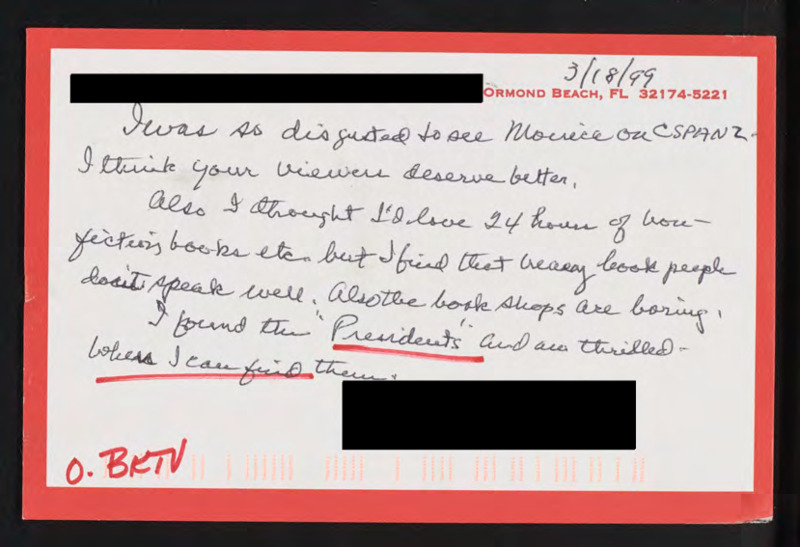 3/18/99
ORMOND BEACH, FL 32174-5221
I was so disgusted to see Monica on CSPAN2-
I think your viewers deserve better.
Also I thought I'd love 24 hours of non-
fiction books etc. but I find that many book people
don't speak well. Also the book shops are boring.
I found the "Presidents" and am thrilled-
when I can find them.
O. BKTV